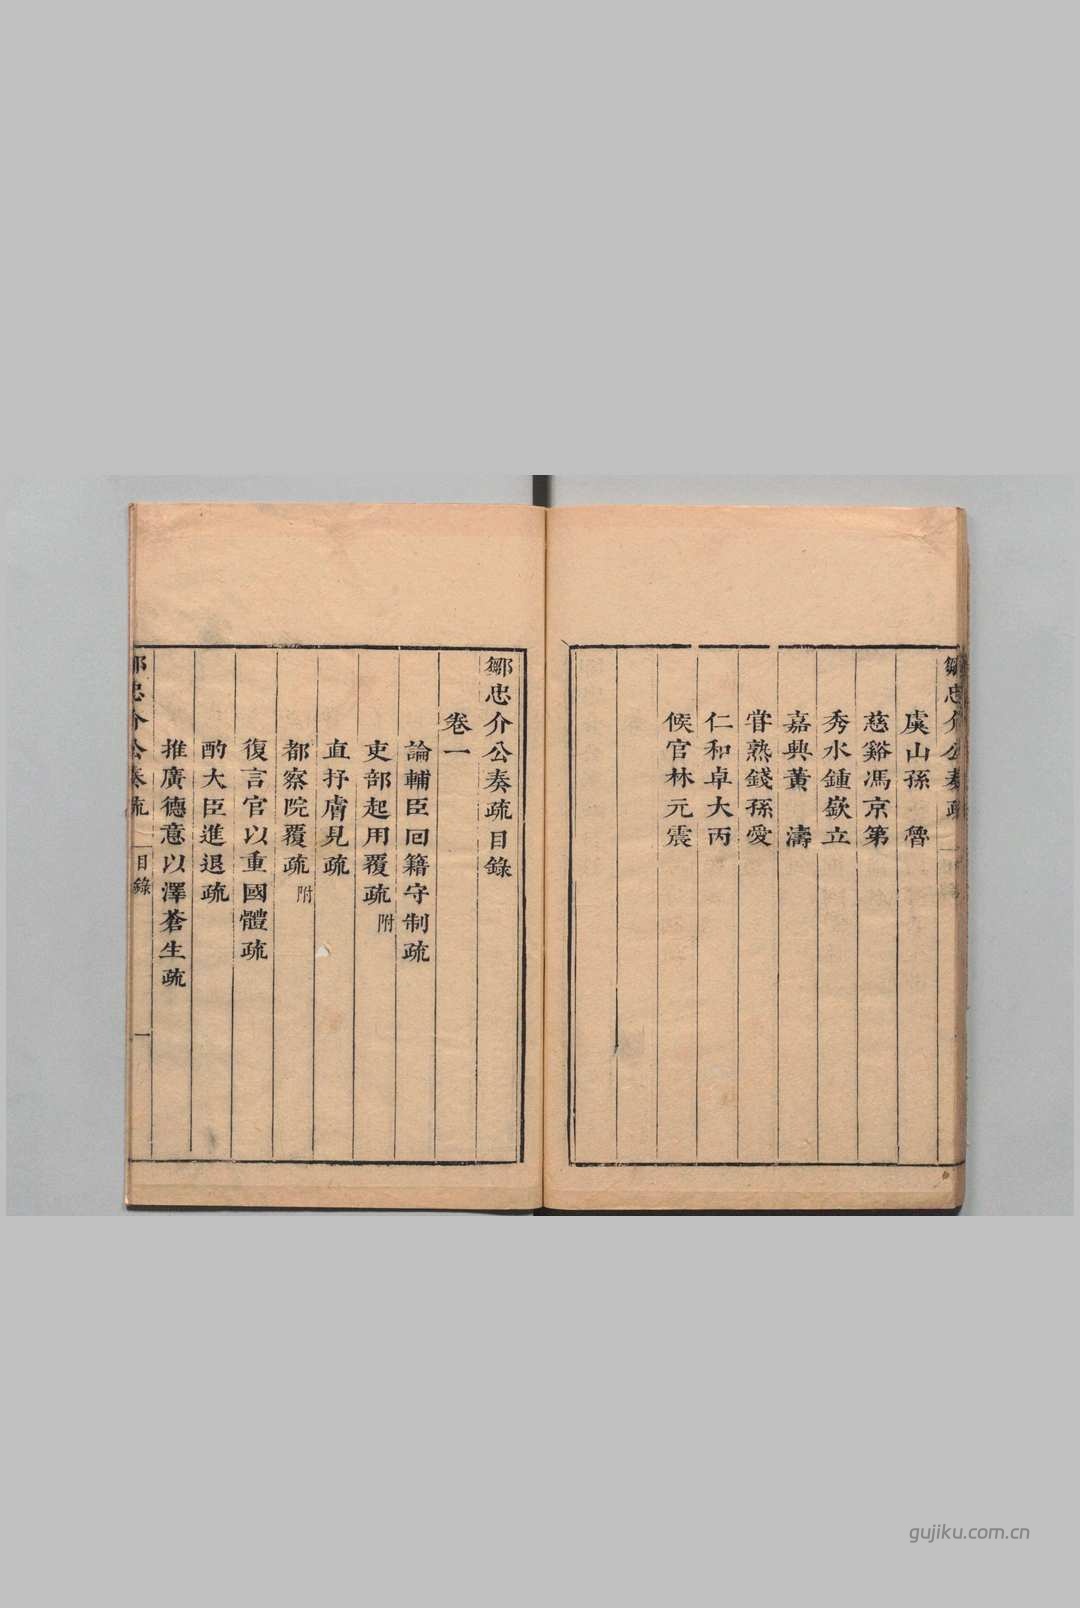 鄒忠介公奏疏
虞山孫　魯
慈谿馮京第
秀水鍾嶔立
嘉興黃　濤
甞熟錢孫愛
仁和卓大丙
候官林元震
鄒忠介公奏疏目錄
卷一
論輔臣回籍守制疏
吏部起用覆疏附
直抒膚見疏
都察院覆疏附
復言官以重國體疏
酌大臣進退疏
推廣德意以澤蒼生疏
鄒忠介公奏疏　目錄　一
gujiku.com.cn